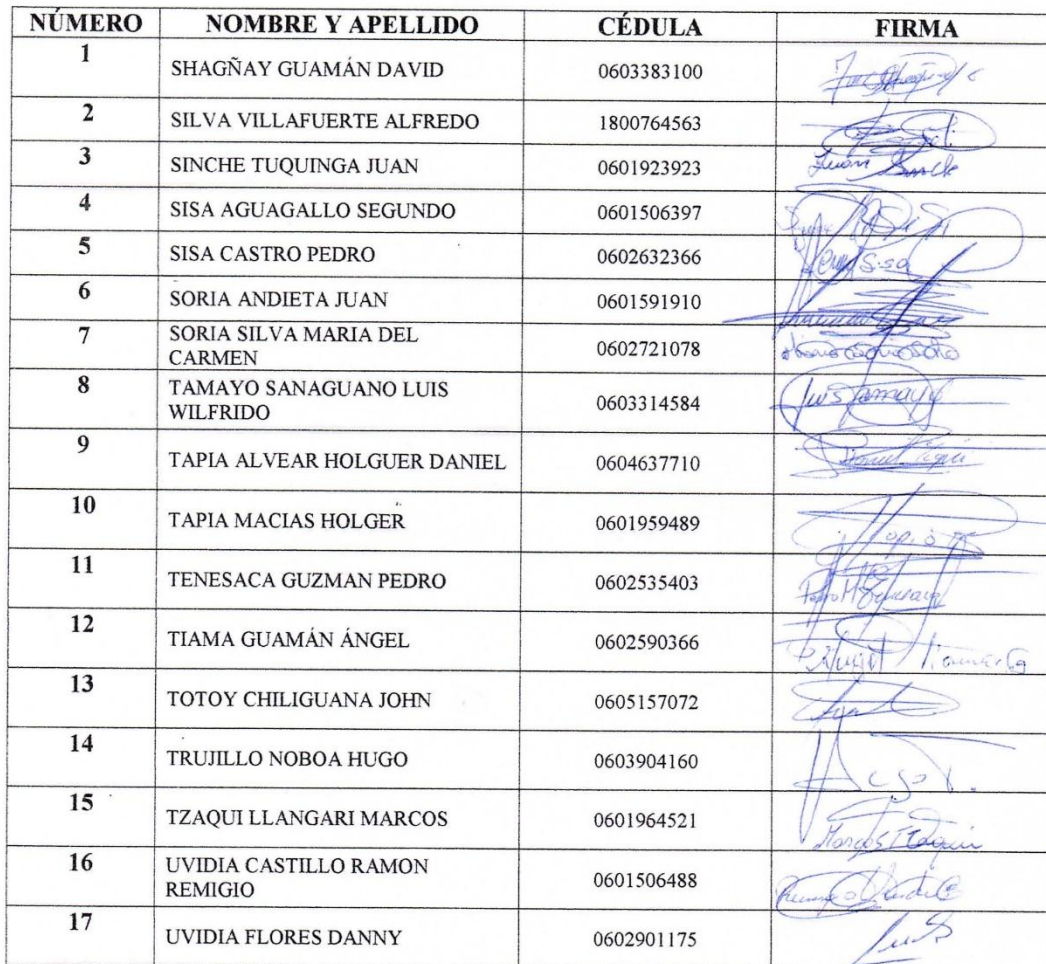 NÚMERO NOMBRE Y APELLIDO CÉDULA FIRMA
1 SHAGÑAY GUAMÁN DAVID 0603383100
2 SILVA VILLAFUERTE ALFREDO 1800764563
3 SINCHE TUQUINGA JUAN 0601923923 Juan
4 SISA AGUAGALLO SEGUNDO 0601506397
5 SISA CASTRO PEDRO 0602632366 Sisa
6 SORIA ANDIETA JUAN 0601591910
7 SORIA SILVA MARIA DEL
CARMEN 0602721078
8 TAMAYO SANAGUANO LUIS
WILFRIDO 0603314584 Luis Tamayo
9 TAPIA ALVEAR HOLGUER DANIEL 0604637710 Daniel
10 TAPIA MACIAS HOLGER 0601959489
11 TENESACA GUZMAN PEDRO 0602535403
12 TIAMA GUAMÁN ÁNGEL 0602590366
13 TOTOY CHILIGUANA JOHN 0605157072
14 TRUJILLO NOBOA HUGO 0603904160
15 TZAQUI LLANGARI MARCOS 0601964521 Marcos
16 UVIDIA CASTILLO RAMON
REMIGIO 0601506488
17 UVIDIA FLORES DANNY 0602901175